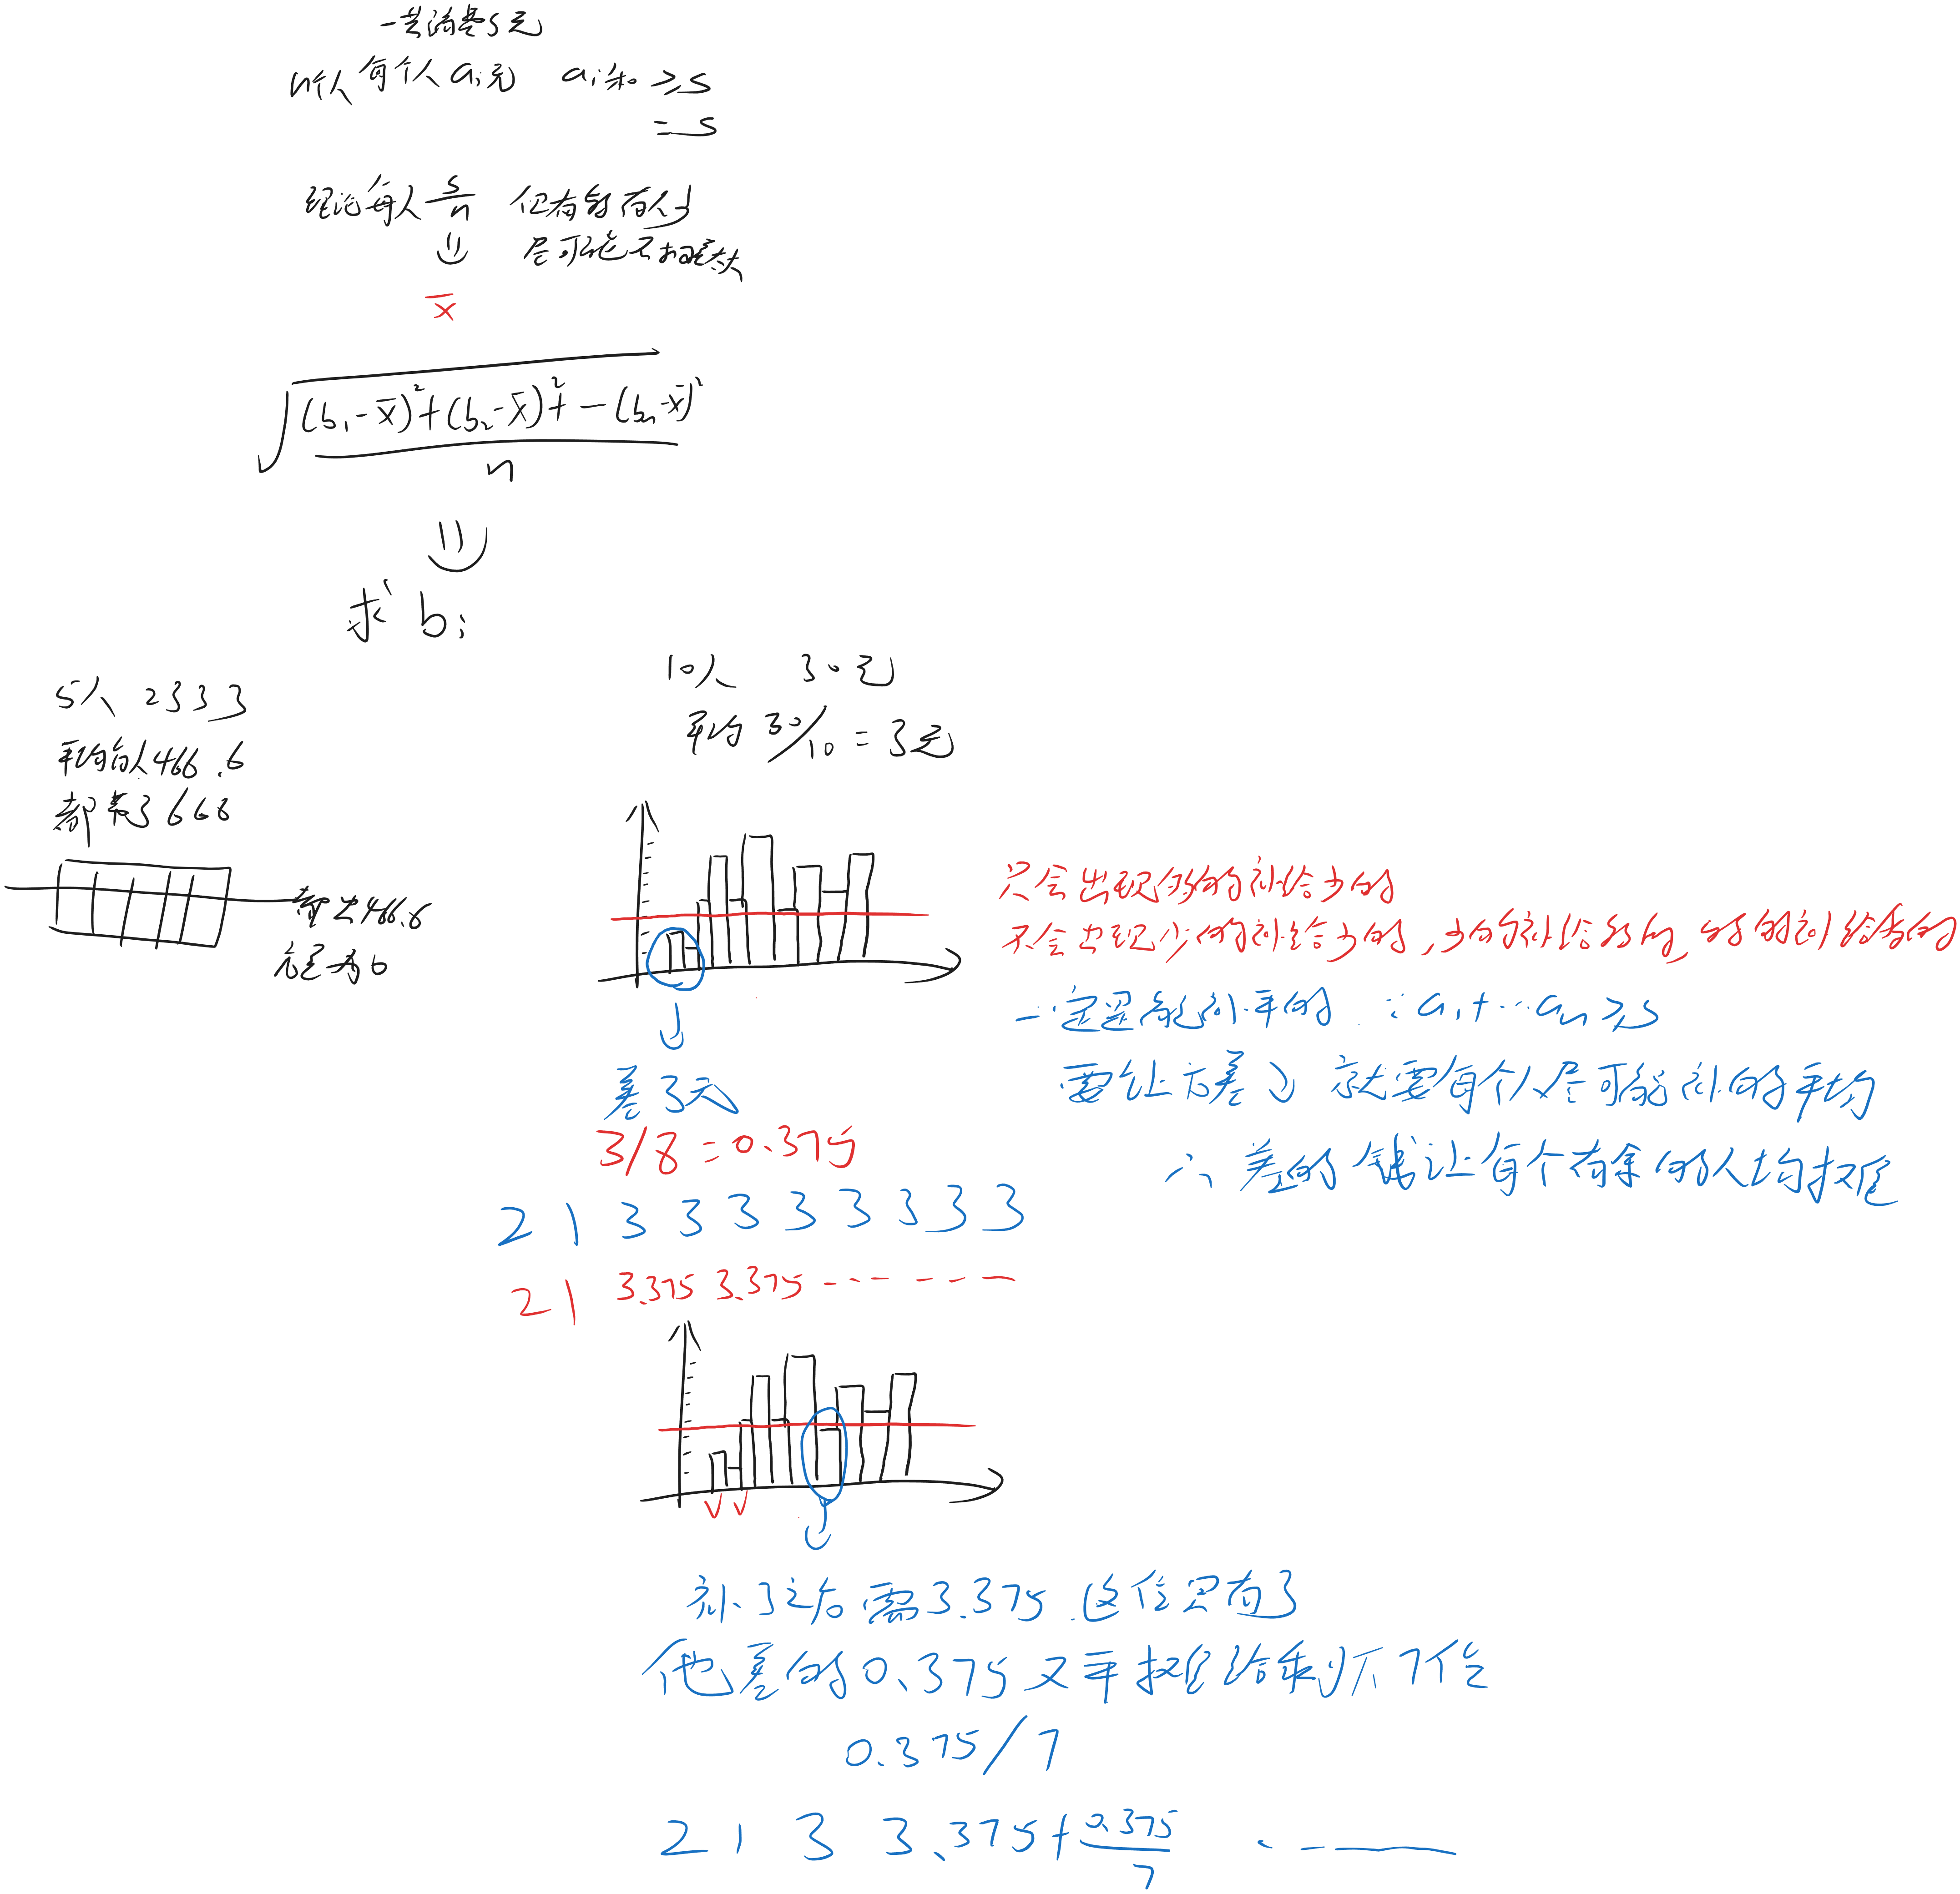 一共消费S元
n个人 每个人ai元 ai和 ≥S
=S
理论每人 S/n 但有的有人少
尽可能不相差太大
x̄
√((b₁-x̄)²+(b₂-x̄)²+—(bn-x̄)²/n)
求 bi
5人 2333
平均每人466.6
都带了666
都出466.6
方差为0
10人 30元
平均 30/10=3元
只会出现多的补给少的
不会出现少的补给少的,少的补给多的,多的补给多的
一定是能补平的 ∵a₁+…an≥S
要让方差小 就要每个人尽可能补的平均
∴差的钱让每个有余的人均摊
差3元
3/8=0.375
2 1 3 3 3 3 3 3 3 3
2 1 3.375 3.375 -- -- — - —
补了之后 需3.375.这位只有3
他差的0.375又平摊给剩下7位
0.375/7
2 1 3 3.375+0.375/7 . - ——